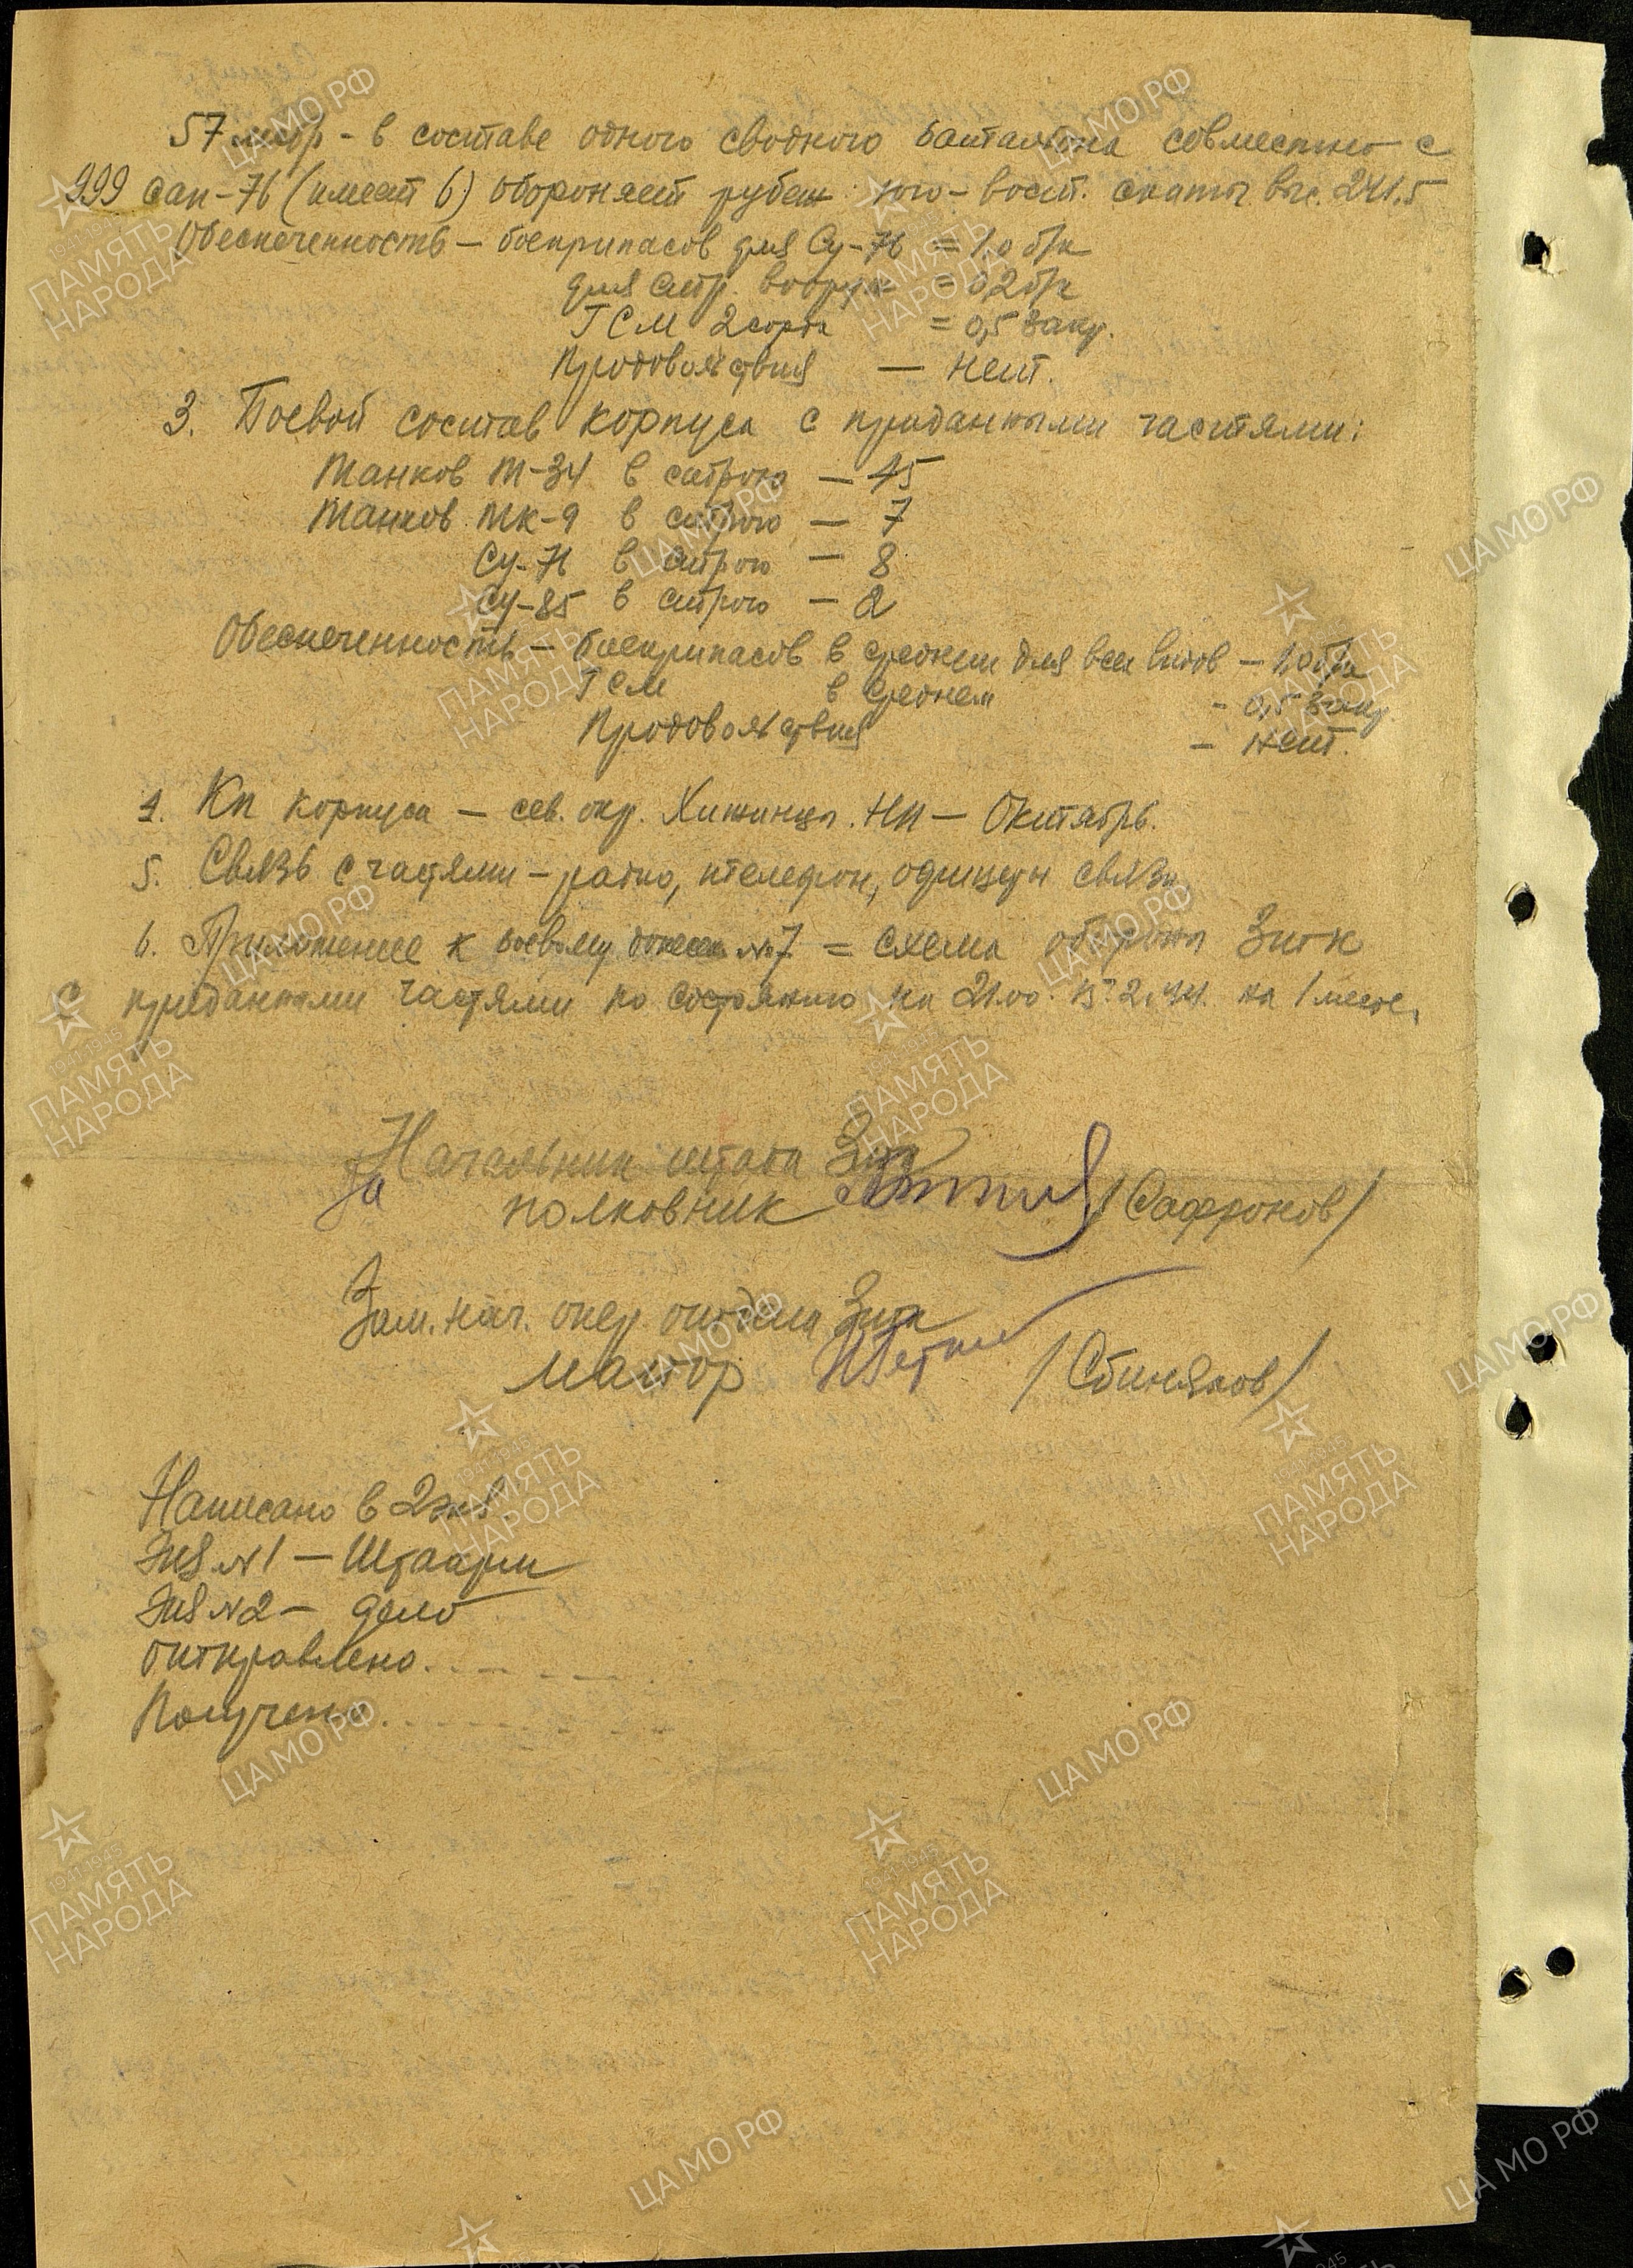 57 мсбр – в составе одного сводного батальона совместно с
999 сап-76 (имеет 6) обороняет рубеж юго-вост. скаты выс. 241,5
Обеспеченность – боеприпасов для Су-76 = 1,0 б/к
для стр. вооруж = 0,2 б/к
ГСМ 2 сорта = 0,5 запр.
Продовольствия – нет.
3. Боевой состав корпуса с приданными частями:
Танков Т-34 в строю – 15
Танков Мк-9 в строю – 7
Су-76 в строю – 8
Су-85 в строю – 2
Обеспеченность – боеприпасов в среднем для всех видов – 1,0 б/к
ГСМ в среднем – 0,5 запр.
Продовольствия – нет.
4. Кп корпуса – сев. окр. Хижинцы. НП – Октябрь.
5. Связь с частями – радио, телефон, офицеры связи
6. Приложение к боевому донесен №7 = схема обороны 3 тк
с приданными частями по состоянию на 21.00. 15.2.44. на 1 листе.
За Начальник штаба 3 тк
полковник /Сафронов/
Зам. нач. опер отдела 3 тк
майор /Сбиняков/
Написано в 2 экз
Экз №1 – Штаарм
Экз №2 – дело
отправлено . . . . .
Получено . . . . . . . .
ЦАМО РФ
1941-1945
ПАМЯТЬ
НАРОДА